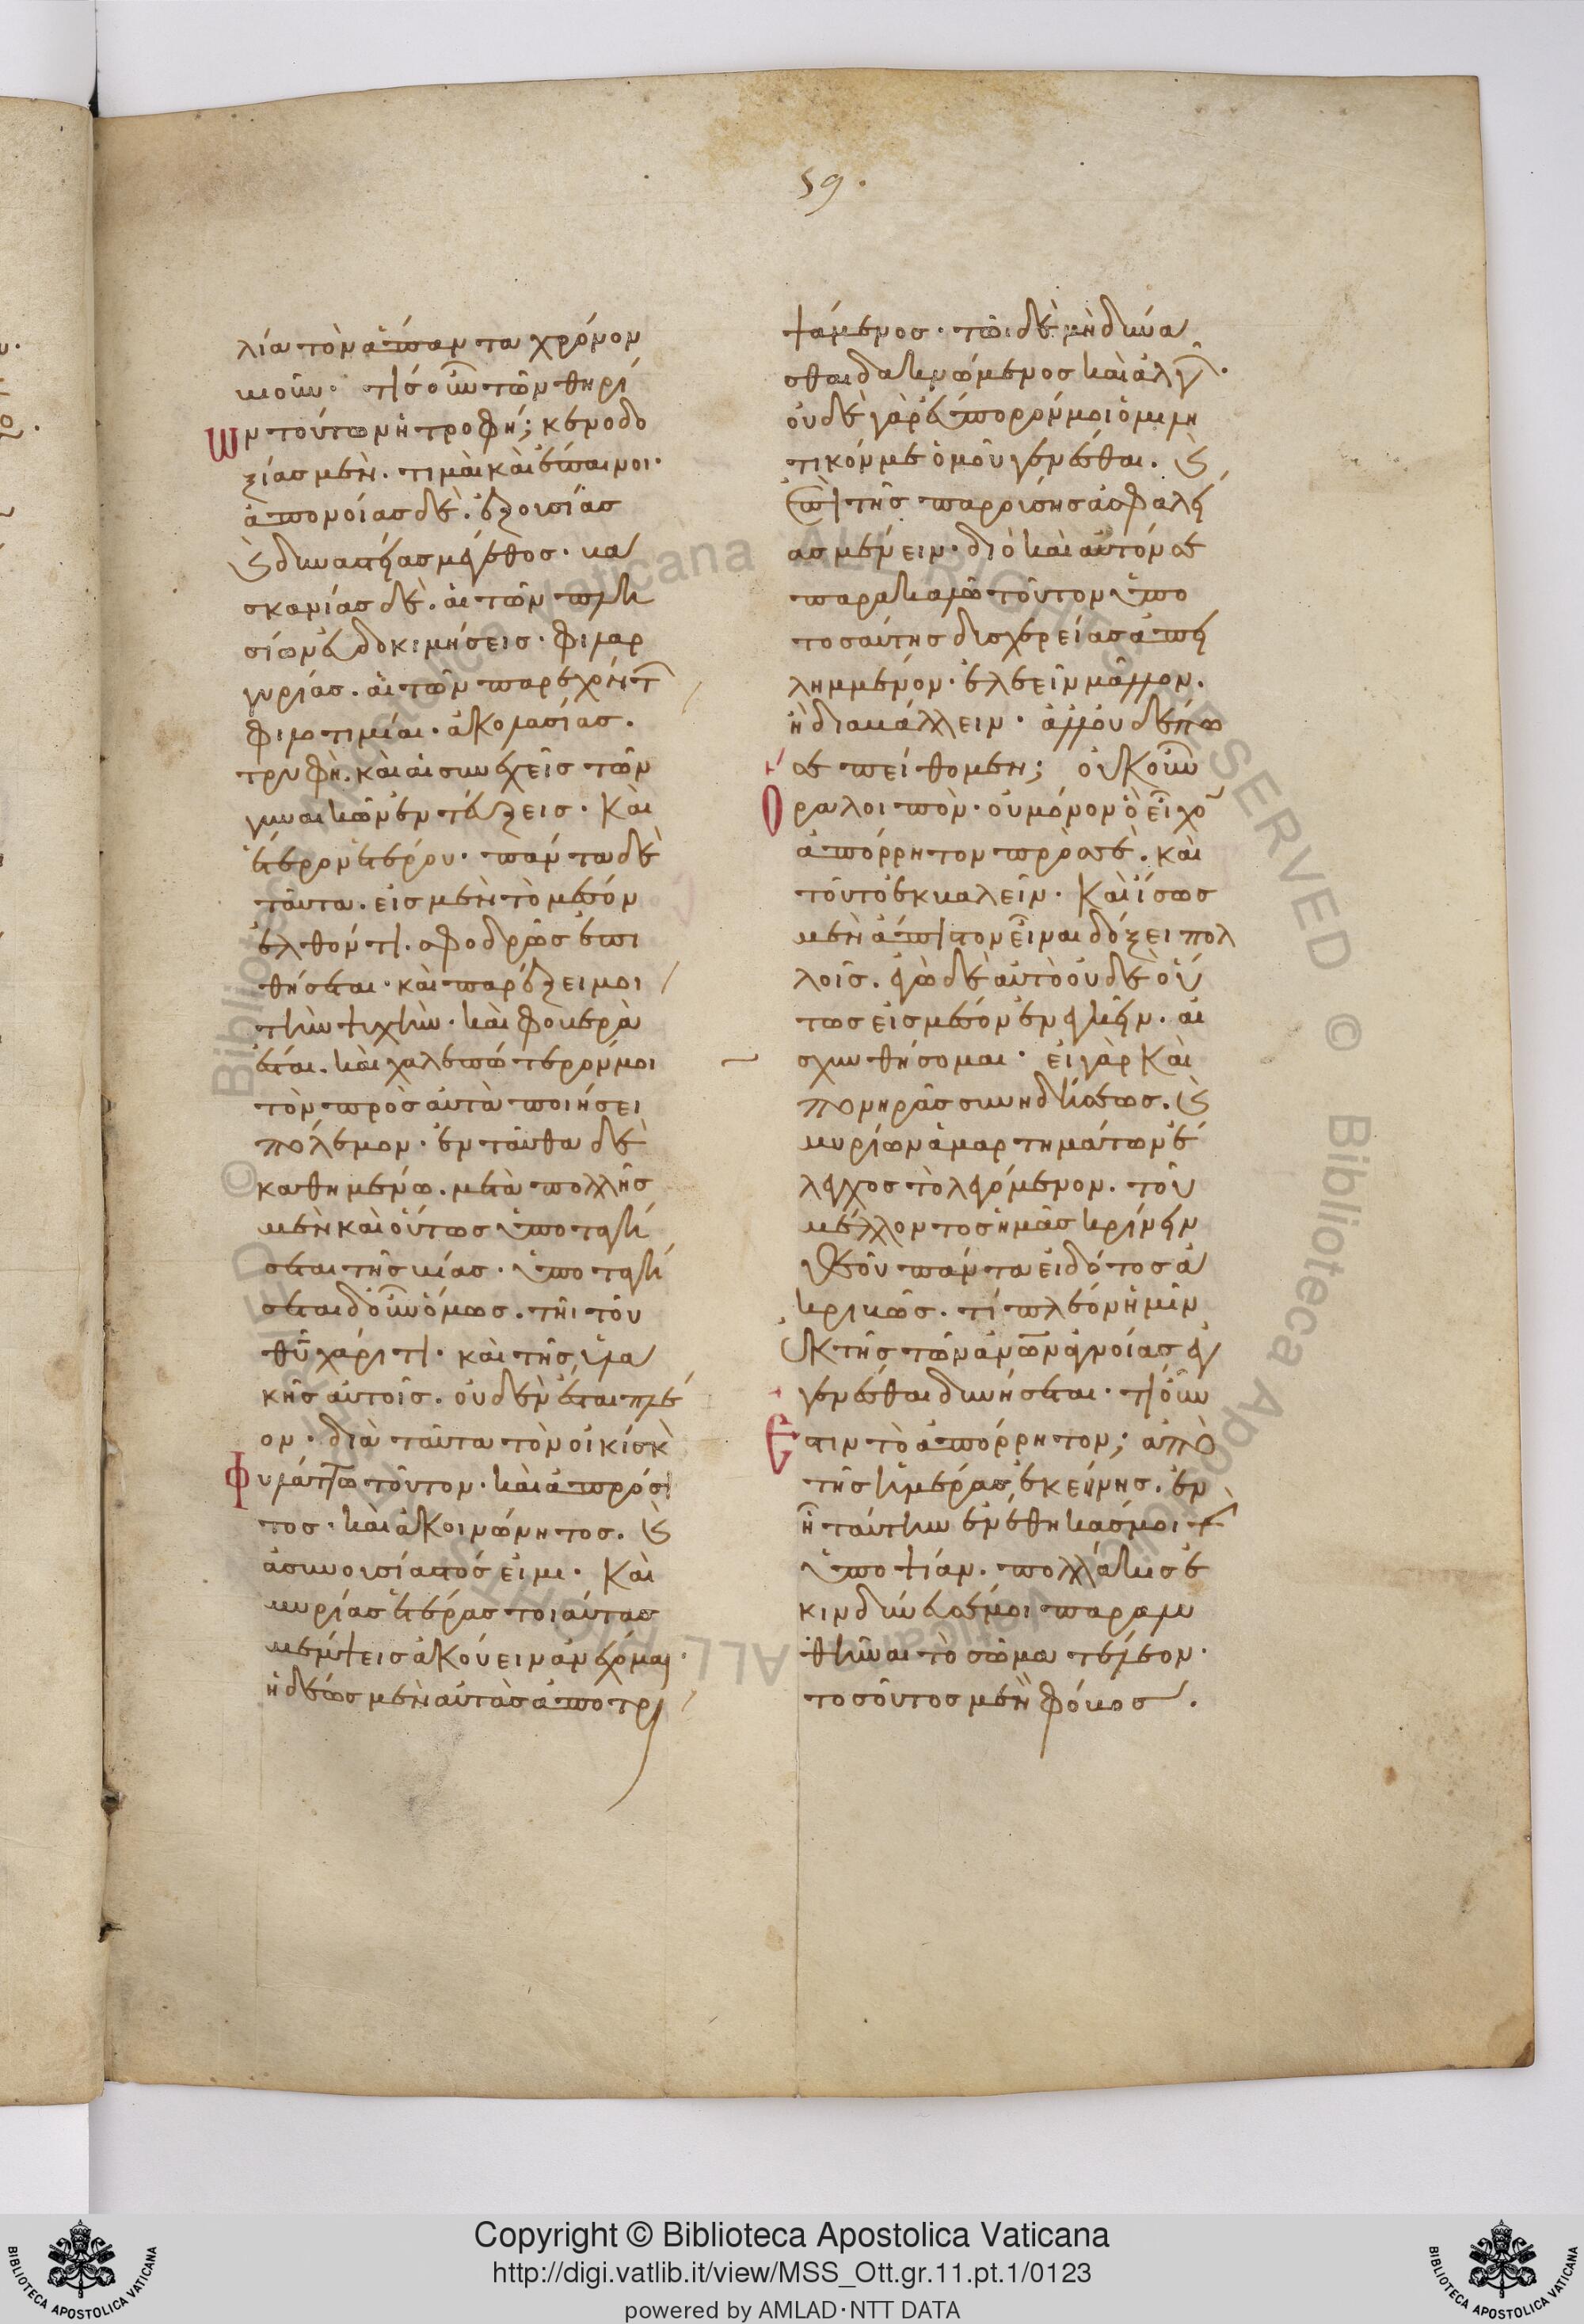 59.
λία τὸν ἅπαντα χρόνον
βιοῦν· τίς οὖν τῶν θηρί
ων τούτων ἡ τροφή; κενοδο
ξίας μὲν. τιμαὶ καὶ ἔπαινοι·
ἀπονοίας δὲ. ἐξουσίας
καὶ δυναστείας μέγεθος· βα
σκανίας δὲ. αἱ τῶν πλη
σίων εὐδοκιμήσεις· φιλαρ
γυρίας. αἱ τῶν παρεχόντ
φιλοτιμίαι· ἀκολασίας.
τρυφὴ. καὶ αἱ συνεχεῖς τῶν
γυναικῶν ἐντεύξεις· καὶ
ἕτερον ἑτέρου· πάντα δὲ
ταῦτα. εἰς μὲν τὸ μέσον
ἐλθόντι. σφοδρῶς ἐπι
θήσεται· καὶ παρέξει μοι
τὴν ψυχὴν. καὶ φοβερὰ
ἔσται. καὶ χαλεπώτερόν μοι
τὸν πρὸς αὐτὰ ποιήσει
πόλεμον· ἐνταῦθα δὲ
καθημένω. μετὰ πολλῆς
μὲν καὶ οὕτως ὑποταγή
σεται τῆς βίας· ὑποταγή
σεται δ' οὖν ὅμως. τῆι τοῦ
θυ χάριτι· καὶ τῆς ὑλα
κῆς αὐτοῖς. οὐδὲν ἔσται πλέ
ον· διὰ ταῦτα τὸν οἰκίσκὸ
φυλάττω τοῦτον. καὶ ἀπρόσι
τος· καὶ ἀκοινώνητος. καὶ
ἀσυνουσίαστός εἰμι· καὶ
μυρίας ἑτέρας τοιαύτας
μέμψεις ἀκούειν ἀνέχομαι·
ἡδέως μὲν αὐτὰς ἀποτρι
ψάμενος· τῶι δὲ μὴ δύνα
σθαι δακνόμενος καὶ ἀλγῶ·
οὐδὲ γὰρ εὔπορόν μοι ὁμιλη
τικόν με ὁμοῦ γενέσθαι. καὶ
ἐπὶ τῆς παρούσης ἀσφαλεί
ας μένειν· διὸ καὶ αὐτόν σε
παρακαλῶ τοῦτον ὑπὸ
τοσαύτης δυσχερείας ἀπει
λημμένον· ἐλεεῖν μᾶλλον.
ἢ διαβάλλειν· ἀλλ' οὐδέπω
σε πείθομεν; οὐκοῦν
ὥρα λοιπὸν· οὐ μόνον ὃ εἶχο
ἀπόρρητον πρὸς σὲ. καὶ
τοῦτο ἐκβαλεῖν· καὶ ἴσως
μὲν ἄπιστον εἶναι δόξει πολ
λοῖς. ἐγὼ δὲ αὐτὸ οὐδὲ οὕ
τως εἰς μέσον ἐνεγκεῖν. αἰ
σχυνθήσομαι· εἰ γὰρ καὶ
πονηρᾶς συνηδήσεως. καὶ
μυρίων ἁμαρτημάτων ἔ
λεγχος τὸ λεγόμενον. τοῦ
μέλλοντος ἡμᾶς κρίνειν
θεοῦ πάντα εἰδότος ἀ
κριβῶς. τί πλέον ἡμῖν
ἐκ τῆς τῶν ανων ἀγνοίας ἐγ
γενέσθαι δυνήσεται· τί οὖν
ἐστιν τὸ ἀπόρρητον; ἀπὸ
τῆς ἡμέρας ἐκείνης. ἐν
ἧ ταύτην ἐνέθηκάς μοι τὴν
ὑποψίαν. πολλάκις ἐ
κινδύνευσέ μοι παραλυ
θῆναι τὸ σῶμα τέλεον·
τοσοῦτος μὲν φόβος.
Copyright © Biblioteca Apostolica Vaticana
http://digi.vatlib.it/view/MSS_Ott.gr.11.pt.1/0123
powered by AMLAD·NTT DATA